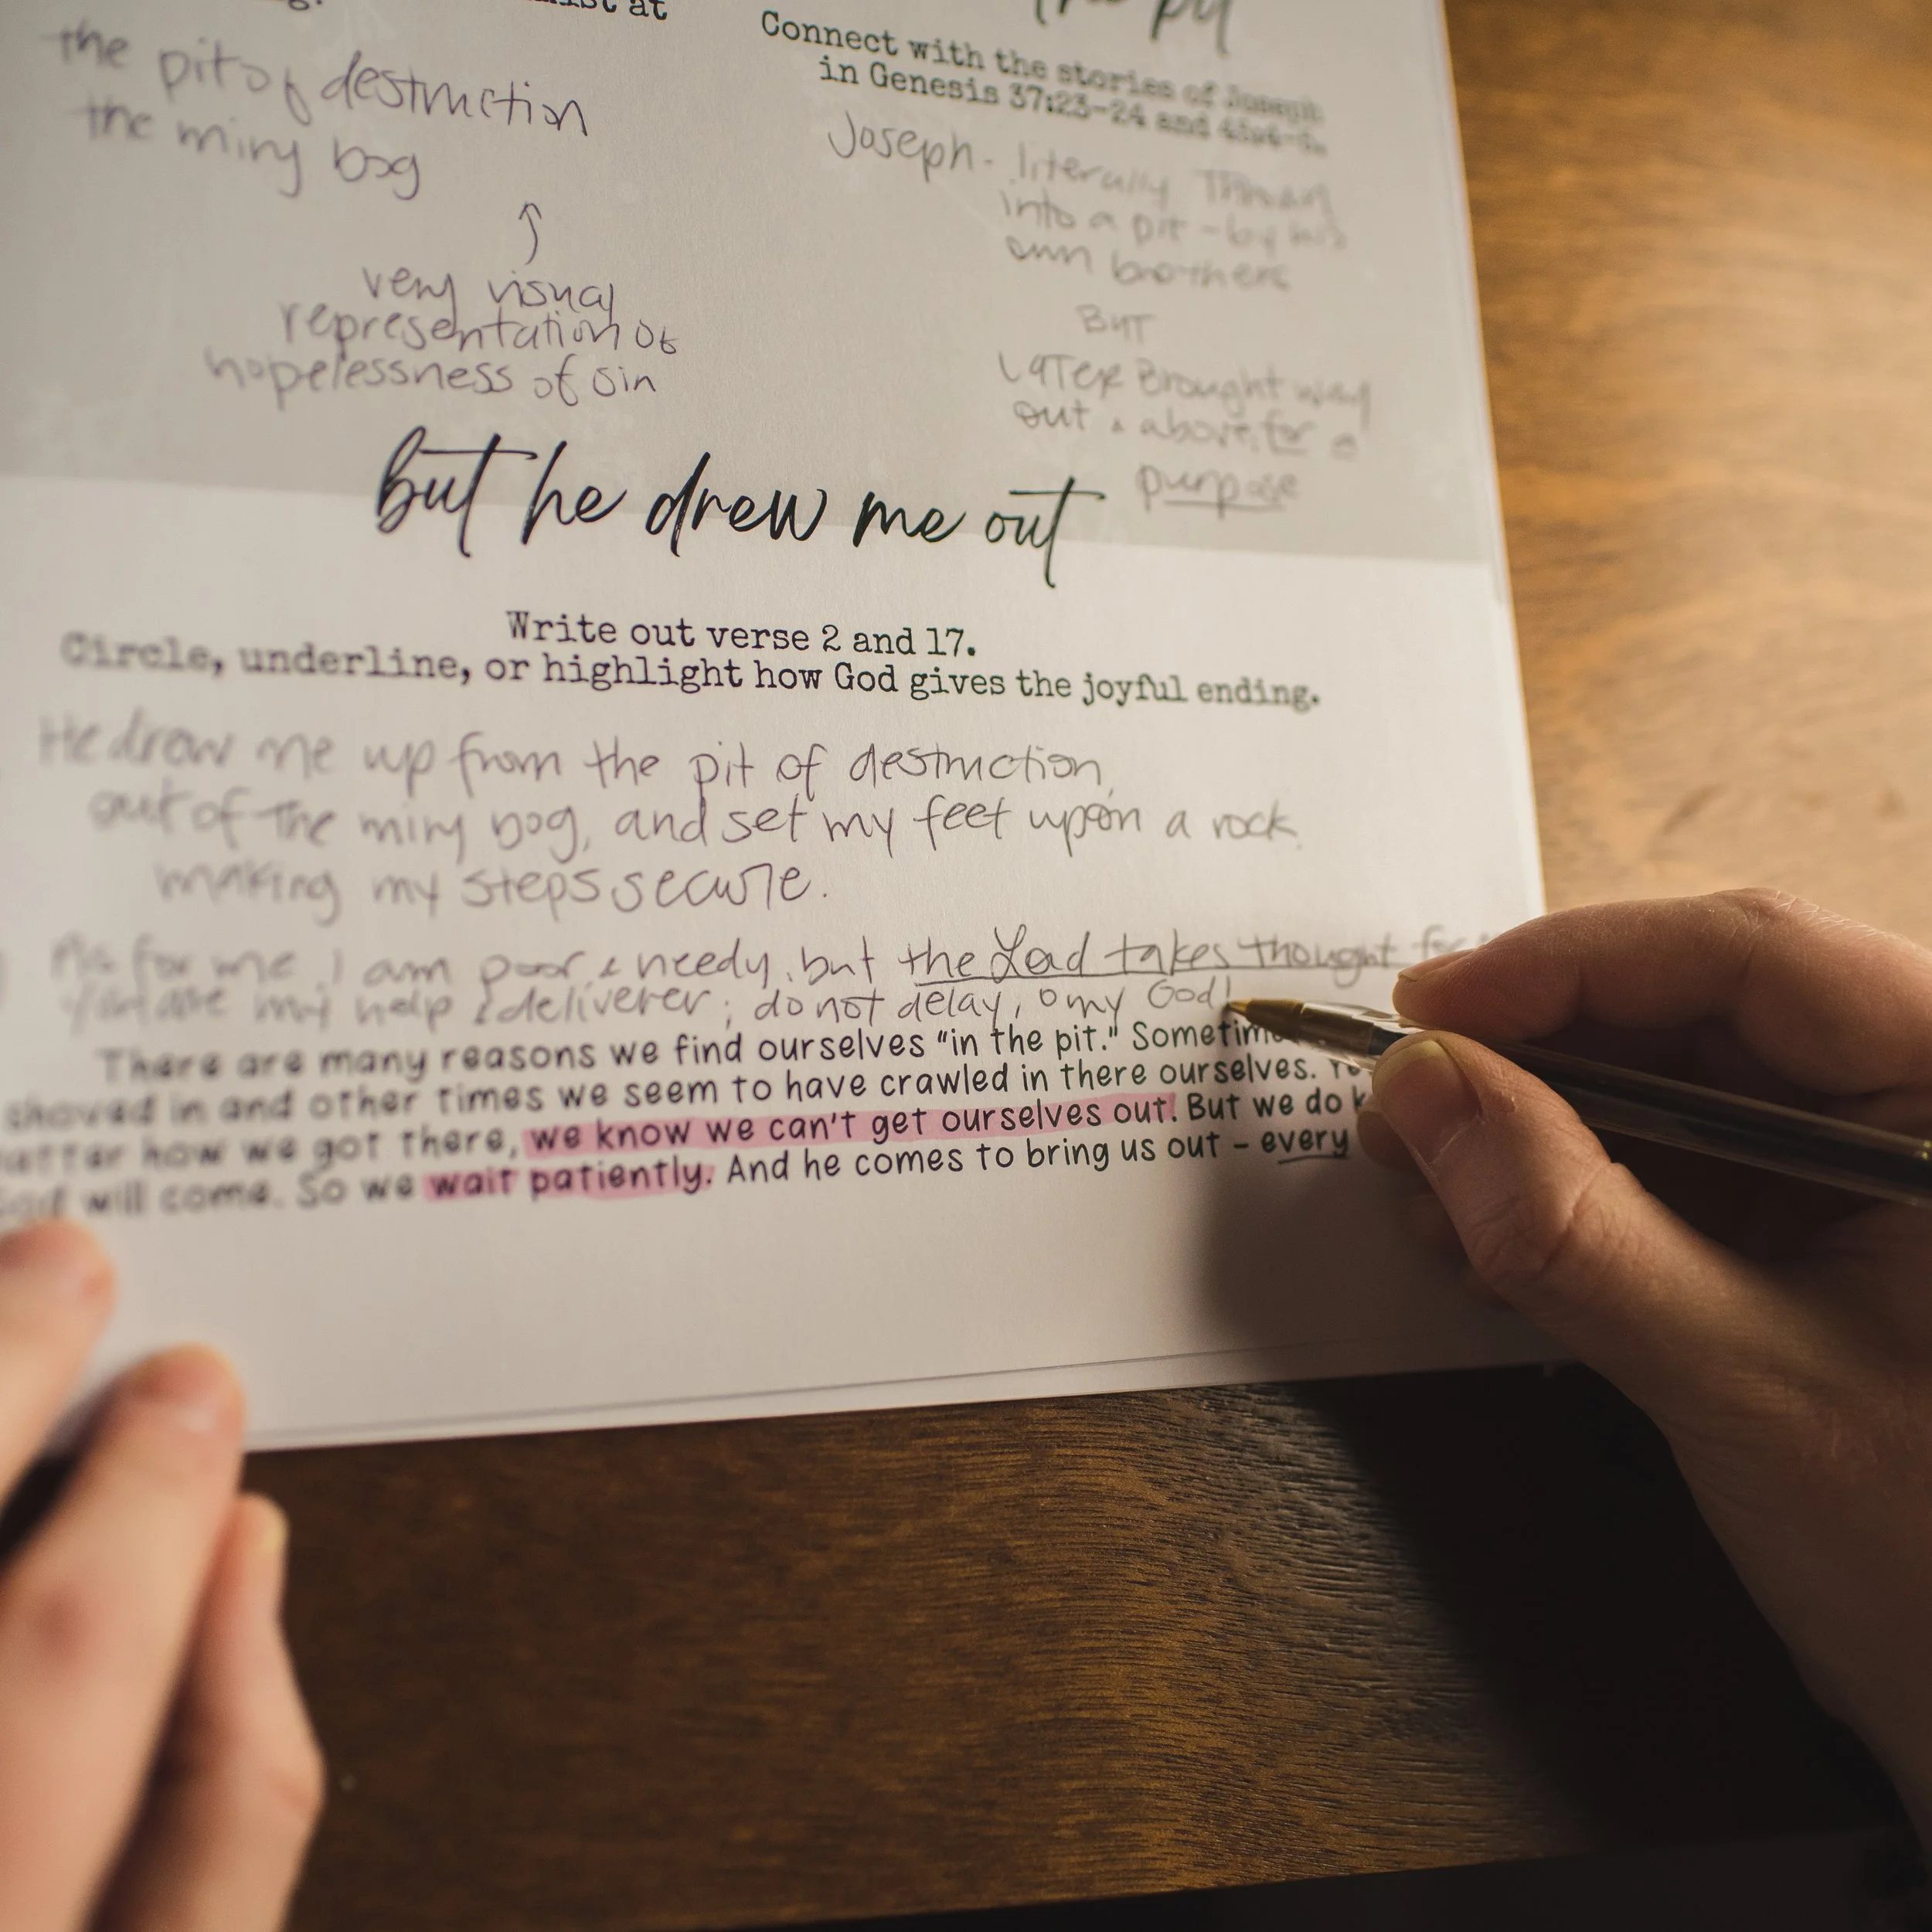 at
the pit of destruction
the miry bog
very visual
representation of
hopelessness of sin
the pit
Connect with the stories of Joseph
in Genesis 37:23-24 and
Joseph - literally Thrown
into a pit - by his
own brothers
BUT
LATER Brought way
out & above, for a
purpose
but he drew me out
Write out verse 2 and 17.
Circle, underline, or highlight how God gives the joyful ending.
He drew me up from the pit of destruction,
out of the miry bog, and set my feet upon a rock
making my steps secure.
As for me, I am poor & needy, but the Lord takes thought for
You are my help & deliverer; do not delay, o my God!
There are many reasons we find ourselves "in the pit."
shoved in and other times we seem to have crawled in there ourselves.
how we got there, we know we can't get ourselves out. But we do
will come. So we wait patiently. And he comes to bring us out - every